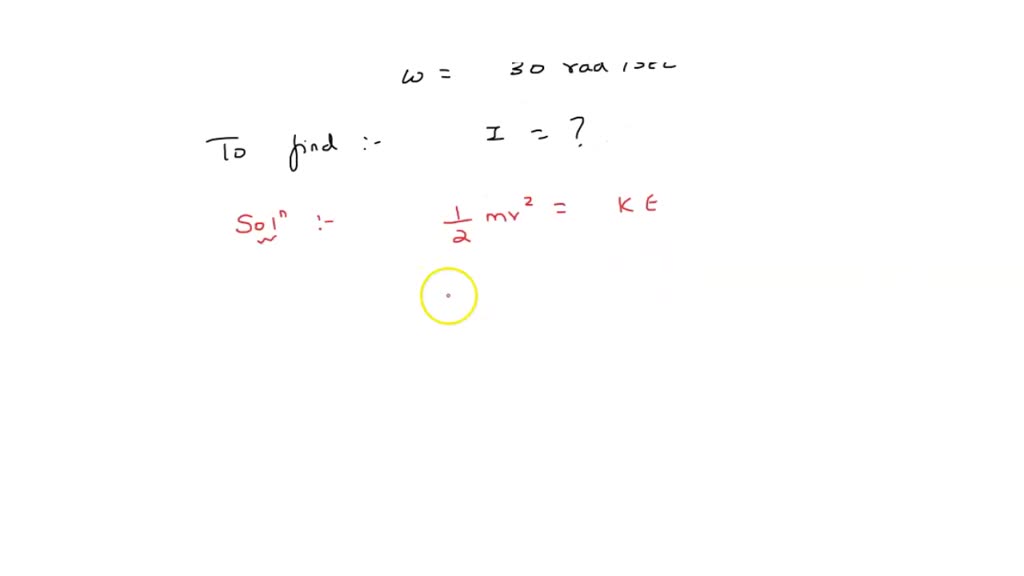 ω = 30 rad/sec
To find :- I = ?
Solⁿ :- 1/2 mv² = KE